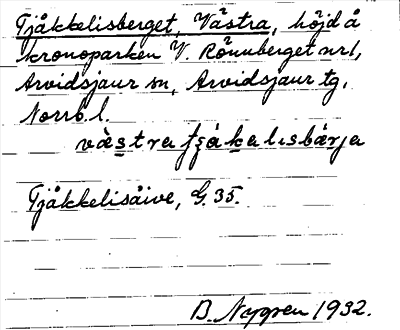 Tjåkkelisberget, Västra, höjd å
kronoparken V. Rönnberget nr 1,
Arvidsjaur sn, Arvidsjaur tg,
Norrb. l.
västra
Tjåkkelisåive, G. 35.
B. Nygren 1932.